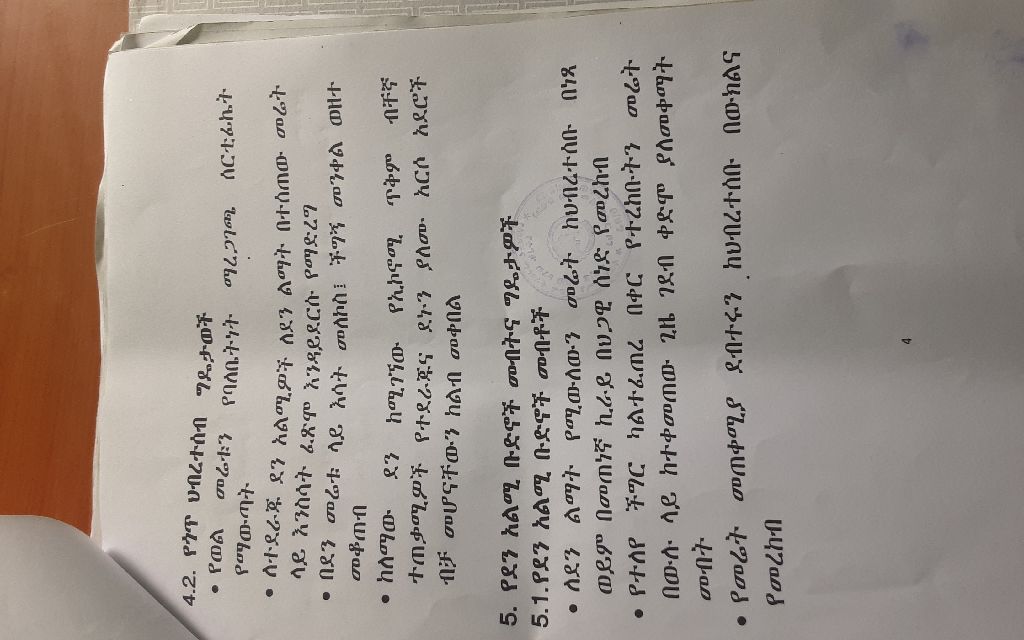 4.2. የነጥ ህብረተሰብ ግዴታወች
• የወል መሬቱን የባለቤትነት ማረጋገጫ ሰርቲፊኬት
የማውጣት
• ለተደራጁ ደን አልሚዎች ለደን ልማት በተሰጠው መሬት
ላይ እንስሳት ፈጽሞ እንዳይደርሱ የማድረግ
• በደን መሬቱ ላይ እሳት መለኮስ፤ ችግኝ መንቀል ወዘተ
መቆጠብ
• ከለማው ደን ከሚገኘው የኢኮኖሚ ጥቅም ብቸኛ
ተጠቃሚዎች የተደራጁና ደኑን ያለሙ አርሶ አደሮች
ብቻ መሆናቸውን ከልብ መቀበል
5. የደን አልሚ ቡድኖች መብትና ግዴታዎች
5.1. የደን አልሚ ቡድኖች መብቶች
• ለደን ልማት የሚውለውን መሬት ከህብረተሰቡ በነጻ
ወይም በመጠነኛ ኪራይ በህጋዊ ሰነድ የመረከብ
• የተለየ ችግር ካልተፈጠረ በቀር የተረከቡትን መሬት
በውሉ ላይ ከተቀመጠው ጊዜ ገደብ ቀድሞ ያለመቀማት
መብት
• የመሬት መጠቀሚያ ደብተሩን ከህብረተሰቡ በውክልና
የመረከብ
4